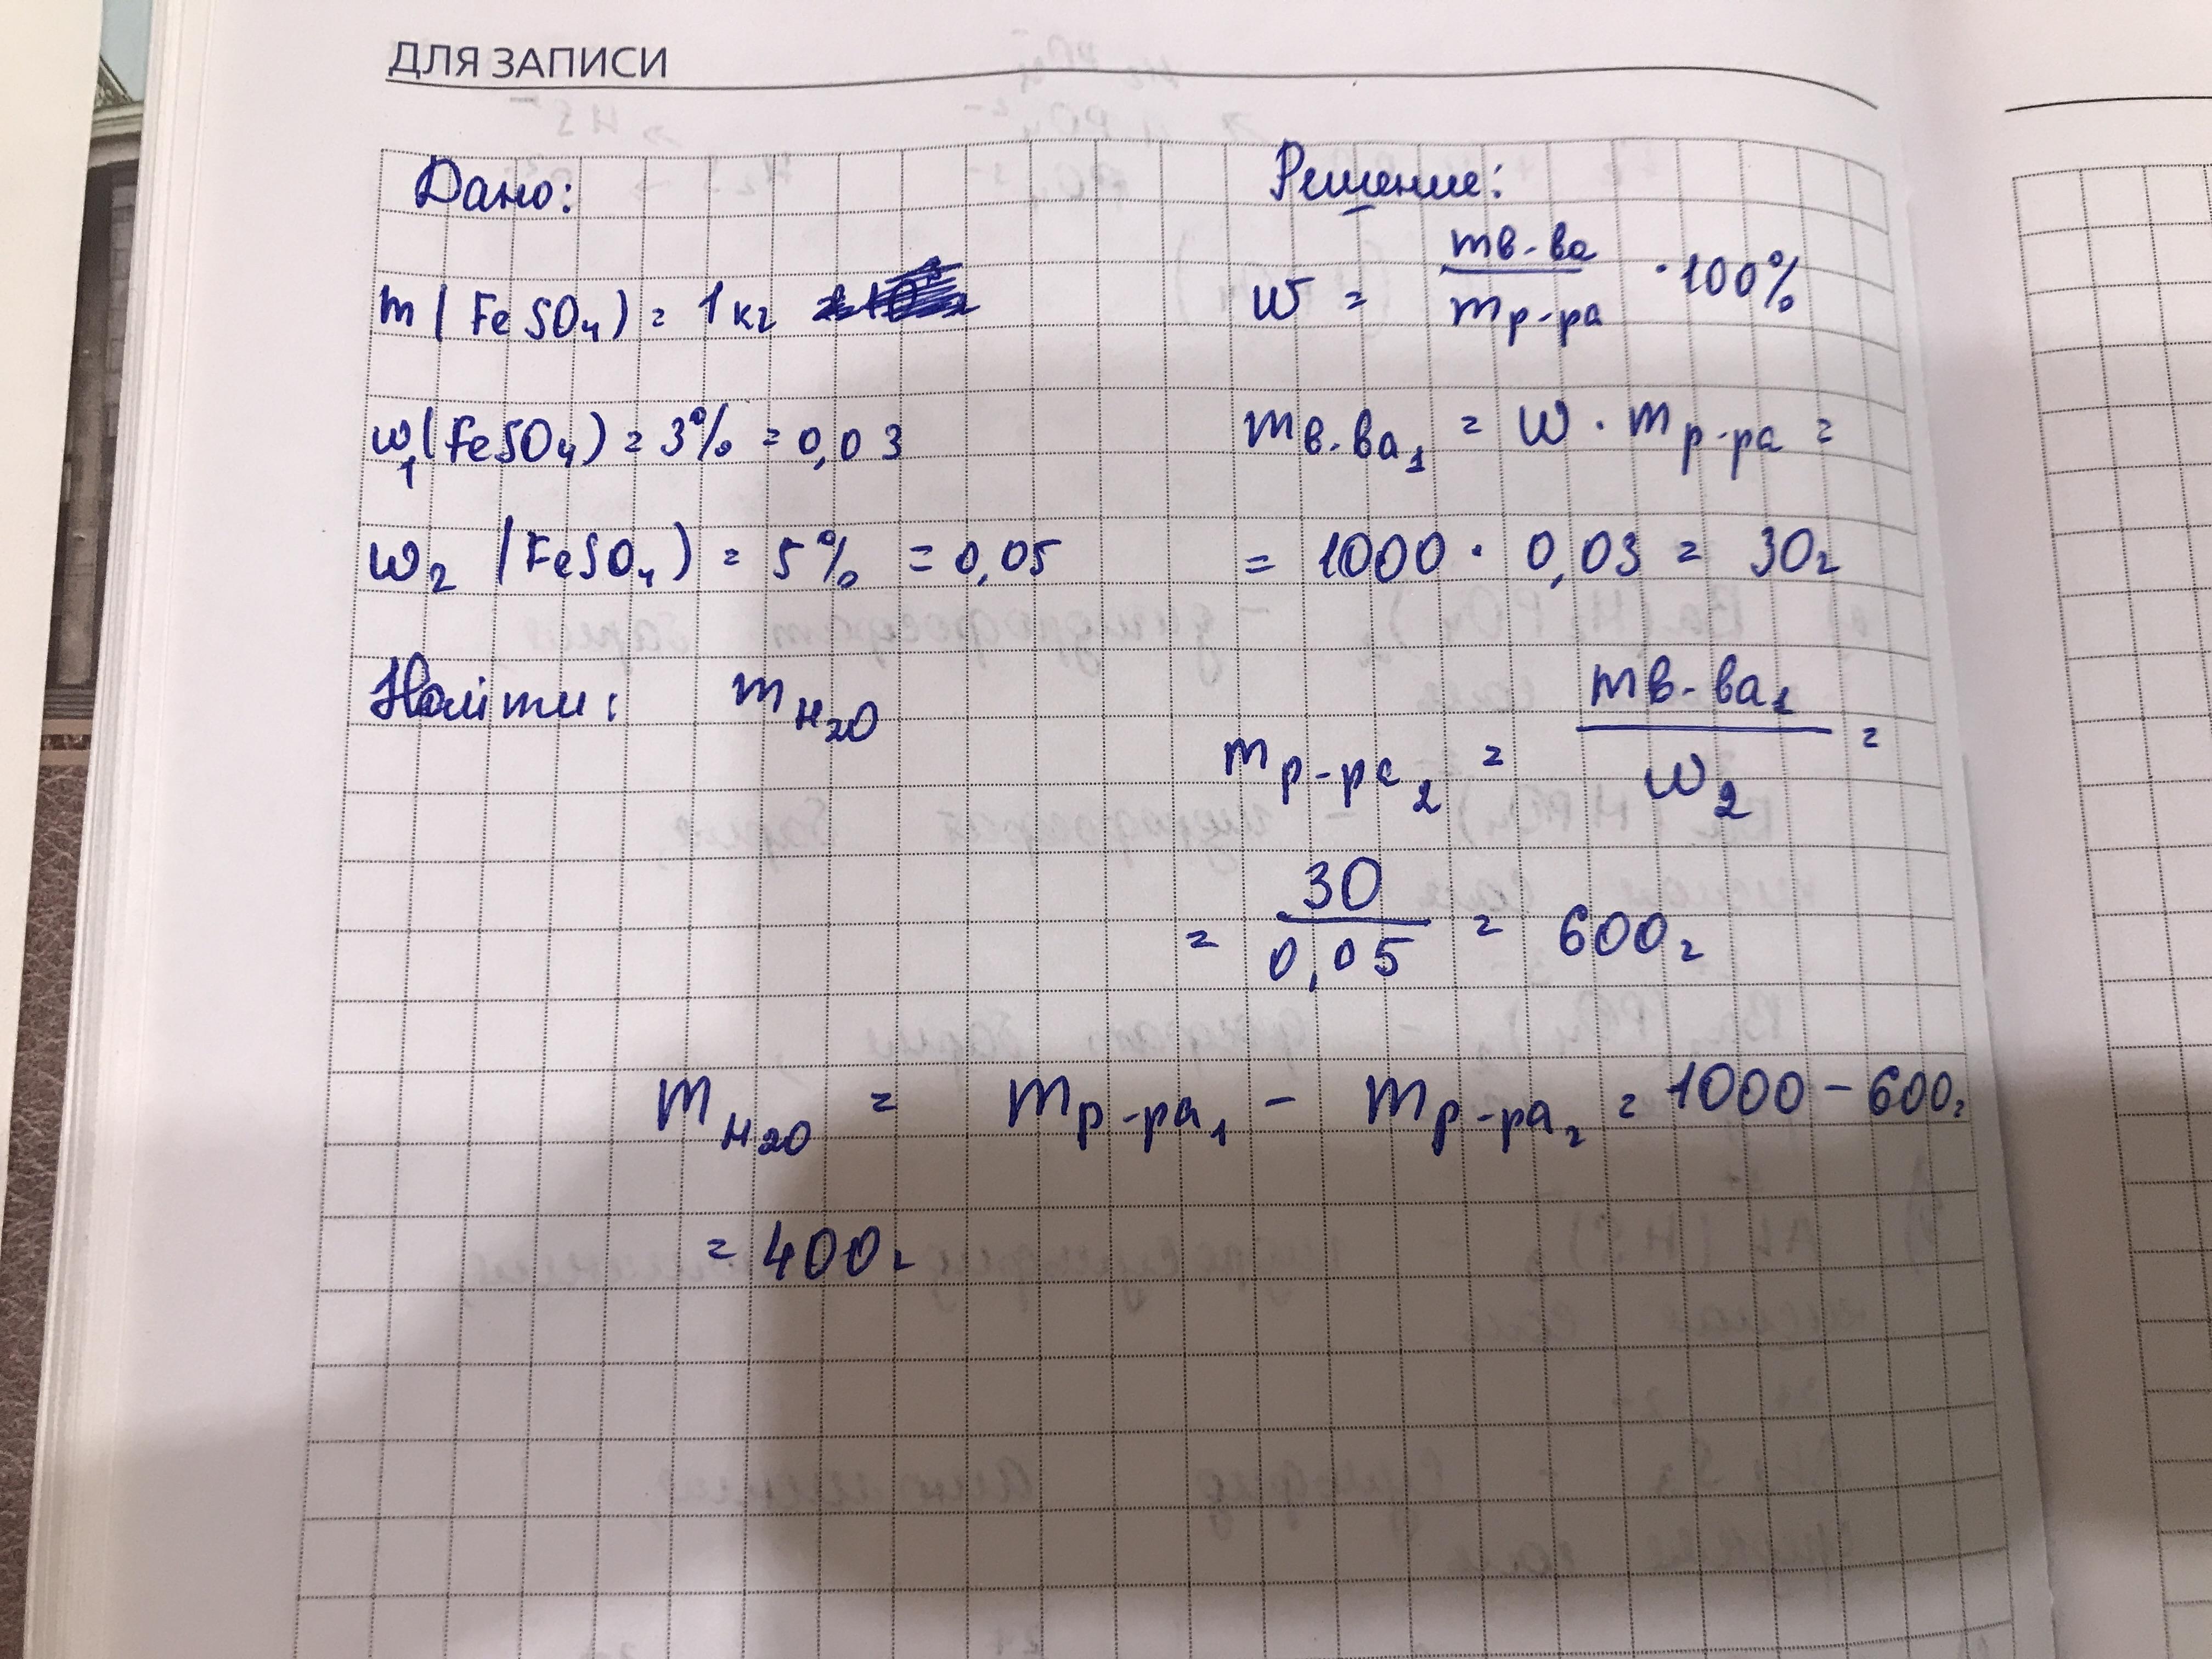 ДЛЯ ЗАПИСИ
Дано:
m(FeSO₄) = 1 кг
w₁(FeSO₄) = 3% = 0,03
w₂ (FeSO₄) = 5% = 0,05
Найти: m H₂O
Решение:
w = mв-ва / mр-ра · 100%
mв-ва₁ = w · mр-ра =
= 1000 · 0,03 = 30г
mр-ра₂ = mв-ва₁ / w₂ =
= 30 / 0,05 = 600г
m H₂O = mр-ра₁ - mр-ра₂ = 1000 - 600=
= 400г